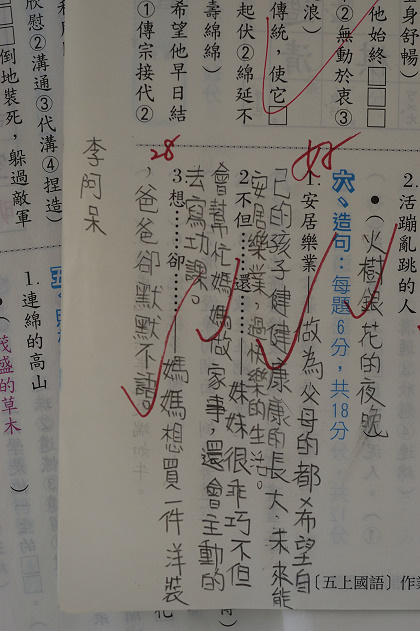 身舒暢）
他始終□□□
②無動於衷③
浪）
傳統，使它□
起伏②綿延不
壽綿綿）
希望他早日結
①傳宗接代②
倒地裝死，躲過敵軍
欣慰②溝通③代溝④捏造）
2.活蹦亂跳的人
●（火樹銀花的夜晚
六、造句：每題6分，共18分
好
1.安居樂業——做為父母的都希望自
己的孩子健健康康的長大，未來能
安居樂業，過快樂的生活。
2.不但……還……——妹妹很乖巧不但
會幫忙媽媽做家事，還會主動的
去寫功課。
28
3.想……卻……——媽媽想買一件洋裝
，爸爸卻默默不話。
李阿呆
〔五上國語〕作
1.連綿的高山
（茂盛的草木）